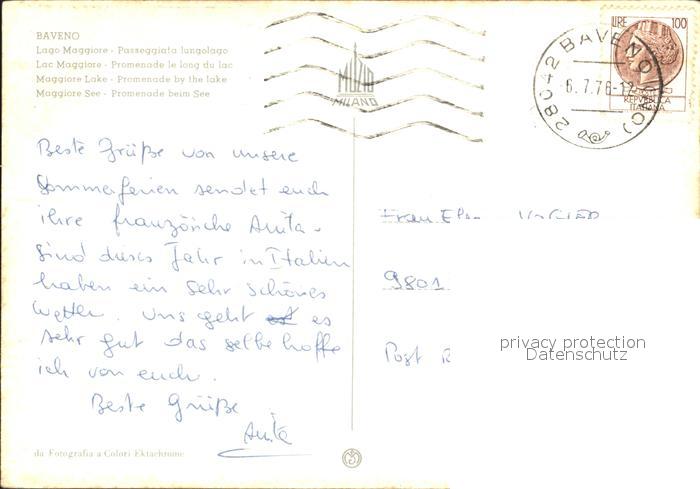 BAVENO
Lago Maggiore - Passeggiata lungolago
Lac Maggiore - Promenade le long du lac
Maggiore Lake - Promenade by the lake
Maggiore See - Promenade beim See
MUZIO
MILANO
28042 BAVENO (NO)
6.7.76-17
LIRE 100
REPVBBLICA
ITALIANA
Beste Grüße von unsere
Sommerferien sendet euch
ihre französiche Anita.
Sind dieses Jahr in Italien
haben ein sehr schönes
Wetter. Uns geht es
sehr gut das selbe hoffe
ich von euch.
Beste Grüße
Anita
Frau
9801
Post
privacy protection
Datenschutz
da Fotografia a Colori Ektachrome